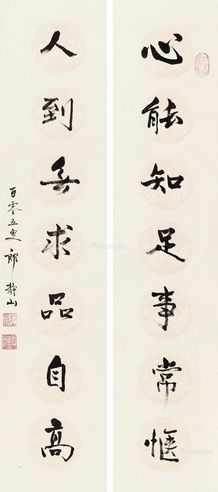 心能知足事常惬
人到无求品自高
百零五叟郎静山